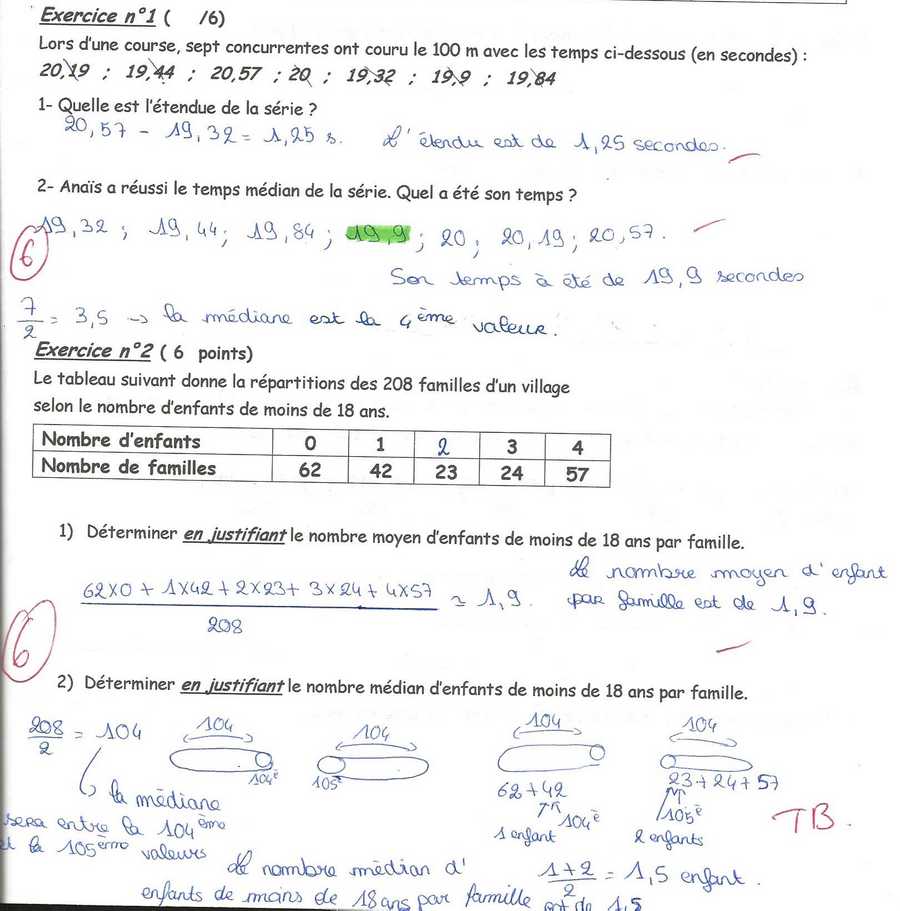 Exercice n°1 ( /6)
Lors d'une course, sept concurrentes ont couru le 100 m avec les temps ci-dessous (en secondes) :
20,19 ; 19,44 ; 20,57 ; 20 ; 19,32 ; 19,9 ; 19,84
1- Quelle est l'étendue de la série ?
20,57 - 19,32 = 1,25 s. L'étendu est de 1,25 secondes.
2- Anaïs a réussi le temps médian de la série. Quel a été son temps ?
19,32 ; 19,44 ; 19,84 ; 19,9 ; 20 ; 20,19 ; 20,57.
6
Son temps à été de 19,9 secondes
7/2 = 3,5 → la médiane est la 4ème valeur.
Exercice n°2 ( 6 points)
Le tableau suivant donne la répartitions des 208 familles d'un village
selon le nombre d'enfants de moins de 18 ans.
Nombre d'enfants 0 1 2 3 4
Nombre de familles 62 42 23 24 57
1) Déterminer en justifiant le nombre moyen d'enfants de moins de 18 ans par famille.
62×0 + 1×42 + 2×23 + 3×24 + 4×57
208
≈ 1,9.
Le nombre moyen d'enfant
par famille est de 1,9.
6
2) Déterminer en justifiant le nombre médian d'enfants de moins de 18 ans par famille.
208/2 = 104
104 104 104 104
104è 105è
62+42 23+24+57
104è 105è
1 enfant 2 enfants
TB.
la médiane
sera entre la 104ème
et la 105ème valeurs
Le nombre médian d'
enfants de moins de 18 ans par famille est de 1,5
1+2/2 = 1,5 enfant.